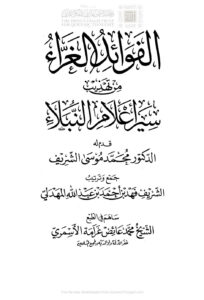 الفوائد الغراء
من تهذيب
سير أعلام النبلاء
قدم له
الدكتور محمد موسى الشريف
جمع وترتيب
الشريف فهد بن أحمد بن عبد الله المهدلي
ساهم في الطبع
الشيخ محمد عائض غرامة الأسمري